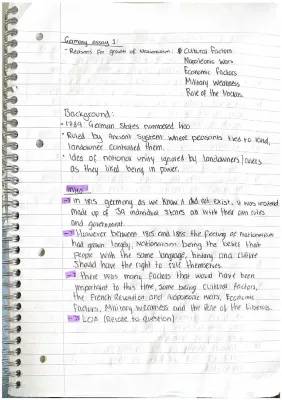 Germany essay 1:
- Reasons for growth of Nationalism:
Cultural Factors
Napoleonic Wars
Economic Factors
Military Weakness
Role of the
Background:
1789 German States numbered 400
Ruled by system where peasants tied to land,
landowner controlled them.
Idea of national unity ignored by landowners/rulers
as they liked being in power.
Intro
In 1815 germany as we know it did not exist, it was instead
made up of 39 individual states all with their own rules
and government.
However between 1815 and the feeling of nationalism
had grown largely, Nationalism being the belief that
people with the same language, history and culture
should have the right to rule themselves.
There was many factors that would have been
important to this time, some being cultural factors,
the French Revolution and Napoleonic wars, Economic
factors, Military weakness and the Role of the Liberals.
(Relate to question)